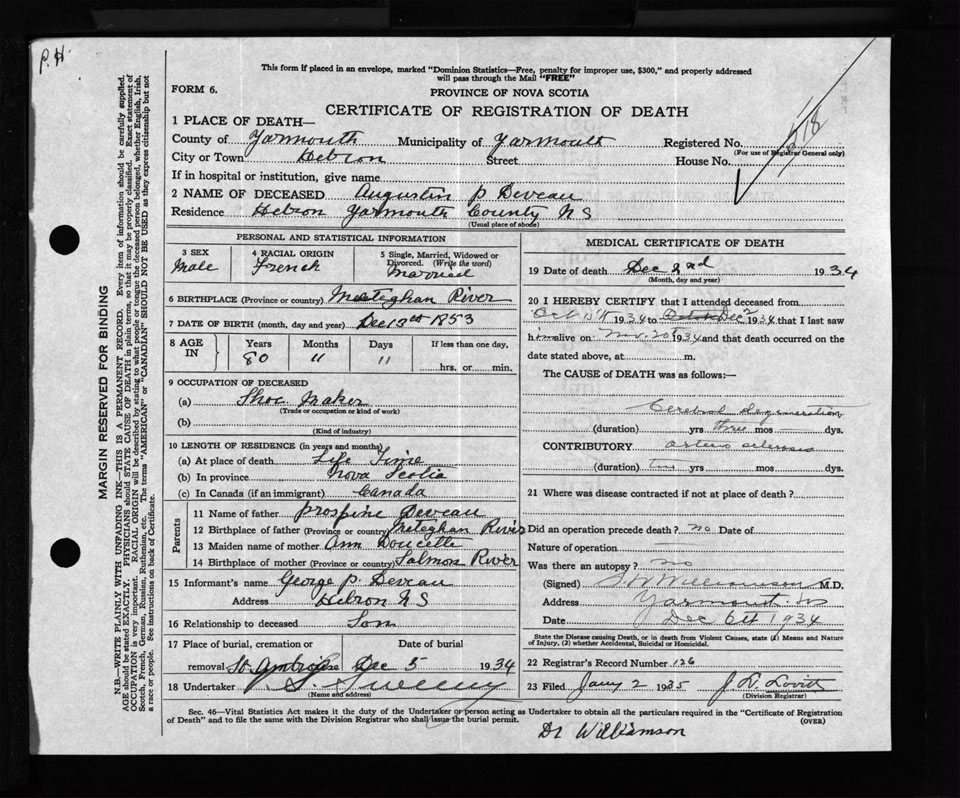 P. H.
This form if placed in an envelope, marked "Dominion Statistics—Free, penalty for improper use, $300," and properly addressed
will pass through the Mail "FREE"
FORM 6.
PROVINCE OF NOVA SCOTIA
CERTIFICATE OF REGISTRATION OF DEATH
1 PLACE OF DEATH—
County of Yarmouth Municipality of Yarmouth Registered No.
(For use of Registrar General only)
City or Town Hebron Street House No.
If in hospital or institution, give name
2 NAME OF DECEASED Augustin P Deveau
Residence Hebron Yarmouth County N S
(Usual place of abode)
PERSONAL AND STATISTICAL INFORMATION
3 SEX Male
4 RACIAL ORIGIN French
5 Single, Married, Widowed or Divorced. (Write the word) Married
6 BIRTHPLACE (Province or country) Meteghan River
7 DATE OF BIRTH (month, day and year) Dec 13th 1853
8 AGE IN Years Months Days If less than one day,
80 11 11 hrs. or min.
9 OCCUPATION OF DECEASED
(a) Shoe Maker
(Trade or occupation or kind of work)
(b)
(Kind of industry)
10 LENGTH OF RESIDENCE (in years and months)
(a) At place of death Life Time
(b) In province Nova Scotia
(c) In Canada (if an immigrant) Canada
Parents
11 Name of father Prospine Deveau
12 Birthplace of father (Province or country) Meteghan River
13 Maiden name of mother Ann Doucette
14 Birthplace of mother (Province or country) Salmon River
15 Informant's name George P. Deveau
Address Hebron N S
16 Relationship to deceased Son
17 Place of burial, cremation or Date of burial
removal St Ambroise Dec 5 1934
18 Undertaker Sweeny
(Name and address)
MEDICAL CERTIFICATE OF DEATH
19 Date of death Dec 2nd 1934
(Month, day and year)
20 I HEREBY CERTIFY that I attended deceased from
Oct 1934 to Dec 2 1934 that I last saw
him alive on Nov 20th 1934 and that death occurred on the
date stated above, at m.
The CAUSE OF DEATH was as follows:—
Cerebral degeneration
(duration) yrs three mos dys.
CONTRIBUTORY arterio sclerosis
(duration) ten yrs mos dys.
21 Where was disease contracted if not at place of death?
Did an operation precede death? no Date of
Nature of operation
Was there an autopsy? No
(Signed) Williamson M.D.
Address Yarmouth NS
Date Dec 6th 1934
State the Disease causing Death, or in death from Violent Causes, state (1) Means and Nature
of Injury, (2) whether Accidental, Suicidal or Homicidal.
22 Registrar's Record Number 126
23 Filed Jany 2 1935 J. R. Lovitt
(Division Registrar)
Sec. 46—Vital Statistics Act makes it duty of the Undertaker or person acting as Undertaker to obtain all the particulars required in the "Certificate of Registration
of Death" and to file the same with the Division Registrar who shall issue the burial permit. (OVER)
Dr Williamson
MARGIN RESERVED FOR BINDING
N.B.—WRITE PLAINLY WITH UNFADING INK—THIS IS A PERMANENT RECORD. Every item of information should be carefully supplied.
AGE should be stated EXACTLY. PHYSICIANS should STATE CAUSE OF DEATH in plain terms, so that it may be properly classified. Exact statement of
OCCUPATION is very important. RACIAL ORIGIN will be described by stating to what people or tongue the deceased person belonged, whether English, Irish,
Scotch, French, German, Russian, Ruthenian, etc. The terms "AMERICAN" or "CANADIAN" SHOULD NOT BE USED as they express citizenship but not
a race or people. See instructions on back of Certificate.